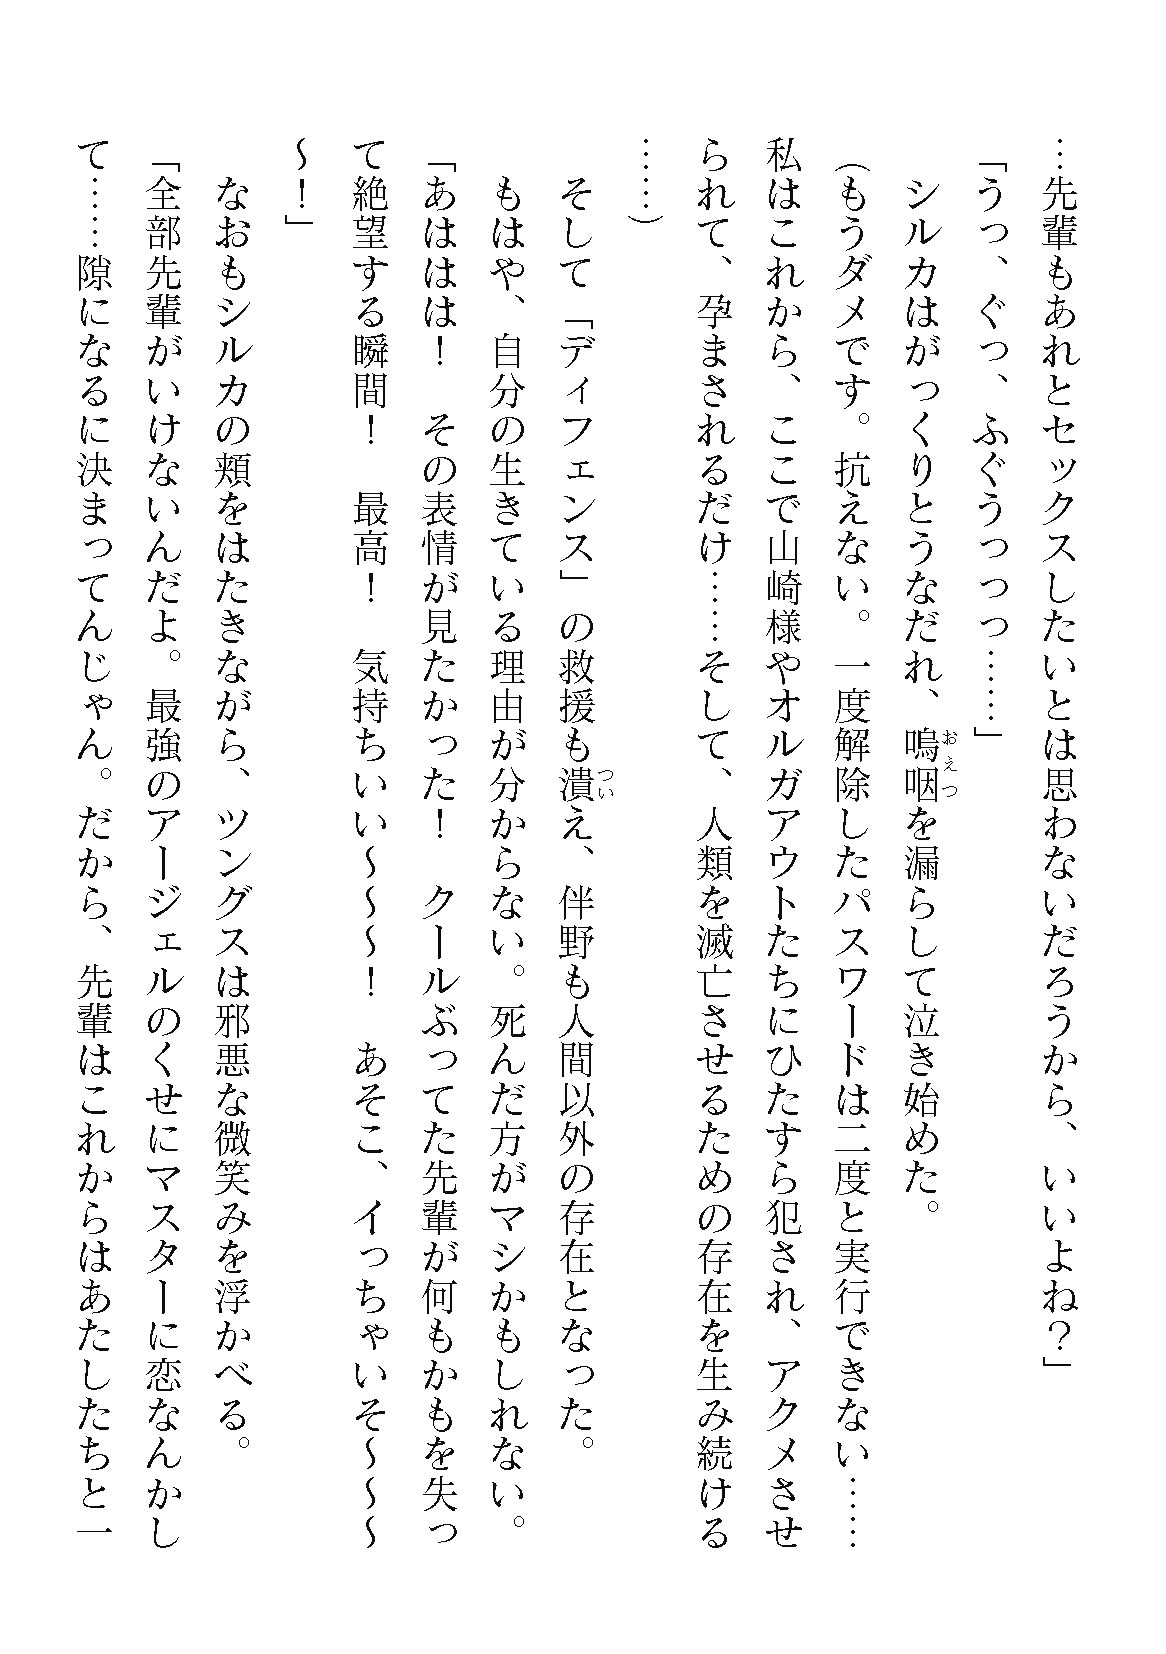 …先輩もあれとセックスしたいとは思わないだろうから、いいよね？」
「うっ、ぐっ、ふぐうっっっ……」
　シルカはがっくりとうなだれ、嗚咽を漏らして泣き始めた。
（もうダメです。抗えない。一度解除したパスワードは二度と実行できない……
私はこれから、ここで山崎様やオルガアウトたちにひたすら犯され、アクメさせ
られて、孕まされるだけ……そして、人類を滅亡させるための存在を生み続ける
……）
　そして「ディフェンス」の救援も潰え、伴野も人間以外の存在となった。
　もはや、自分の生きている理由が分からない。死んだ方がマシかもしれない。
「あははは！　その表情が見たかった！　クールぶってた先輩が何もかもを失っ
て絶望する瞬間！　最高！　気持ちいい～～～！　あそこ、イっちゃいそ～～～
～！」
　なおもシルカの頬をはたきながら、ツングスは邪悪な微笑みを浮かべる。
「全部先輩がいけないんだよ。最強のアージェルのくせにマスターに恋なんかし
て……隙になるに決まってんじゃん。だから、先輩はこれからはあたしたちと一